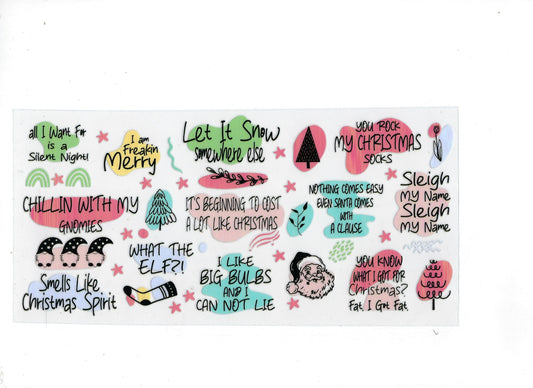 all I Want For
is a
Silent Night!
I am
Freakin
Merry
Let It Snow
somewhere else
YOU ROCK
MY CHRISTMAS
SOCKS
CHILLIN WITH MY
GNOMIES
IT'S BEGINNING TO COST
A LOT LIKE CHRISTMAS
NOTHING COMES EASY
EVEN SANTA COMES
WITH
A CLAUSE
Sleigh
My Name
Sleigh
My Name
Smells Like
Christmas Spirit
WHAT THE
ELF?!
I LIKE
BIG BULBS
AND I
CAN NOT LIE
YOU KNOW
WHAT I GOT FOR
Christmas?
Fat, I Got Fat.